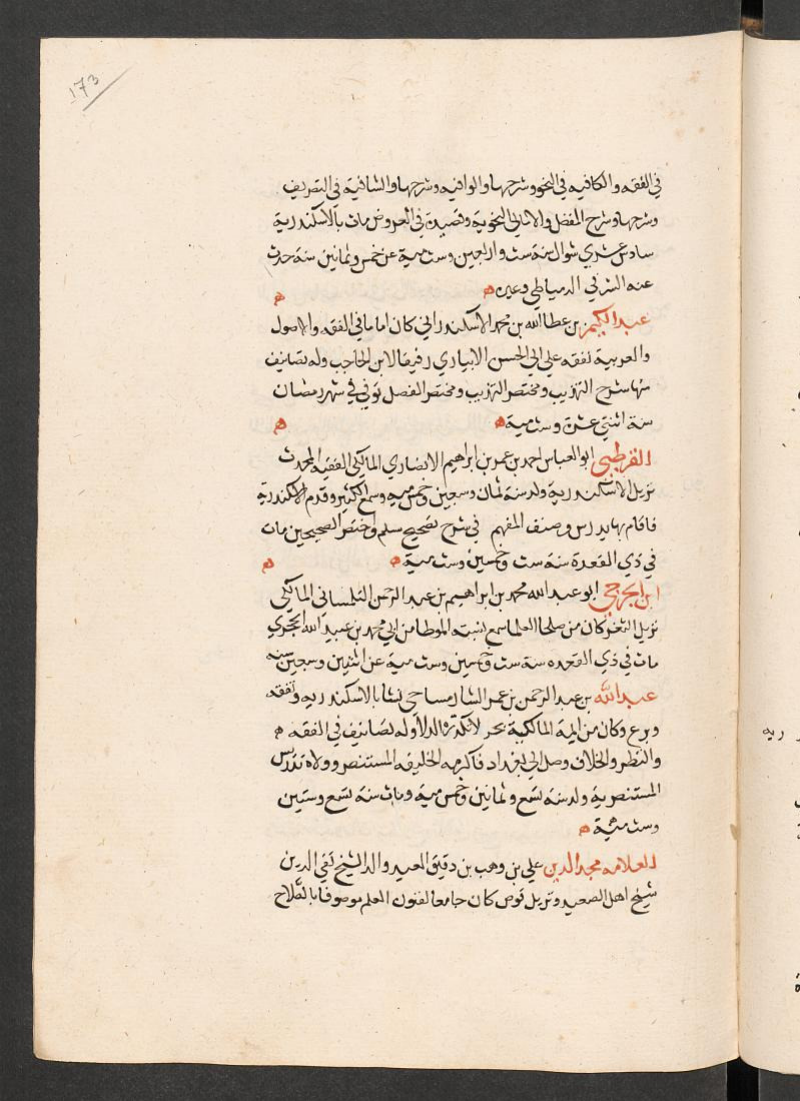 173
في الفقه والكافيه في النحو وشرحها والوافيه وشرحها والشافية في التصريف
وشرحها وشرح المفصل والامالي النحوية وقصيدة في العروض مات بالاسكندرية
سادس عشري شوال سنة ست واربعين وست مية عن خمس وثمانين سنة حدث
عنه الشرف الدمياطي وغيره ه ه
عبد الكريم بن عطا الله بن محمد الاسكندراني كان اماما في الفقه والاصول
والعربية تفقه علي ابي الحسن الابياري رفيقا لابن الحاجب وله تصانيف
منها شرح التهذيب ومختصر التهذيب ومختصر المفصل توفي في شهر رمضان
سنة اثنتي عشرة وست مية ه ه
القرطبي ابو العباس احمد بن عمر بن ابراهيم الانصاري المالكي الفقيه المحدث
نزيل الاسكندرية ولد سنة ثمان وسبعين وخمس مية وسمع الكثير وقدم الاسكندرية
فاقام بها يدرس وصنف المفهم في شرح صحيح مسلم واختصر الصحيحين مات
في ذي القعدة سنة ست وخمسين وست مية ه ه
ابن الجرجي ابو عبد الله محمد بن ابراهيم بن عبد الرحمن التلمساني المالكي
نزيل الثغر كان من صلحا العلما سمع بسبته الموطا من ابي محمد بن عبيد الله الحجري
مات في ذي القعده سنة ست وخمسين وست مية عن اثنتين وسبعين سنه
عبد الله بن عبد الرحمن بن عمر الشارمساحي نشا بالاسكندريه وتفقه
وبرع وكان من ايمة المالكية بحر لا تكدره الدلا وله تصانيف في الفقه ه
والنظر والخلاف وصل الي بغداد فاكرمه الخليفه المستنصر وولاه تدريس
المستنصرية ولد سنة تسع وثمانين وخمس مية ومات سنة تسع وستين
وست مئية ه
العلامه مجد الدين علي بن وهب بن دقيق العيد والد الشيخ تقي الدين
شيخ اهل الصعيد ونزيل قوص كان جامعا لفنون العلم موصوفا بالصلاح